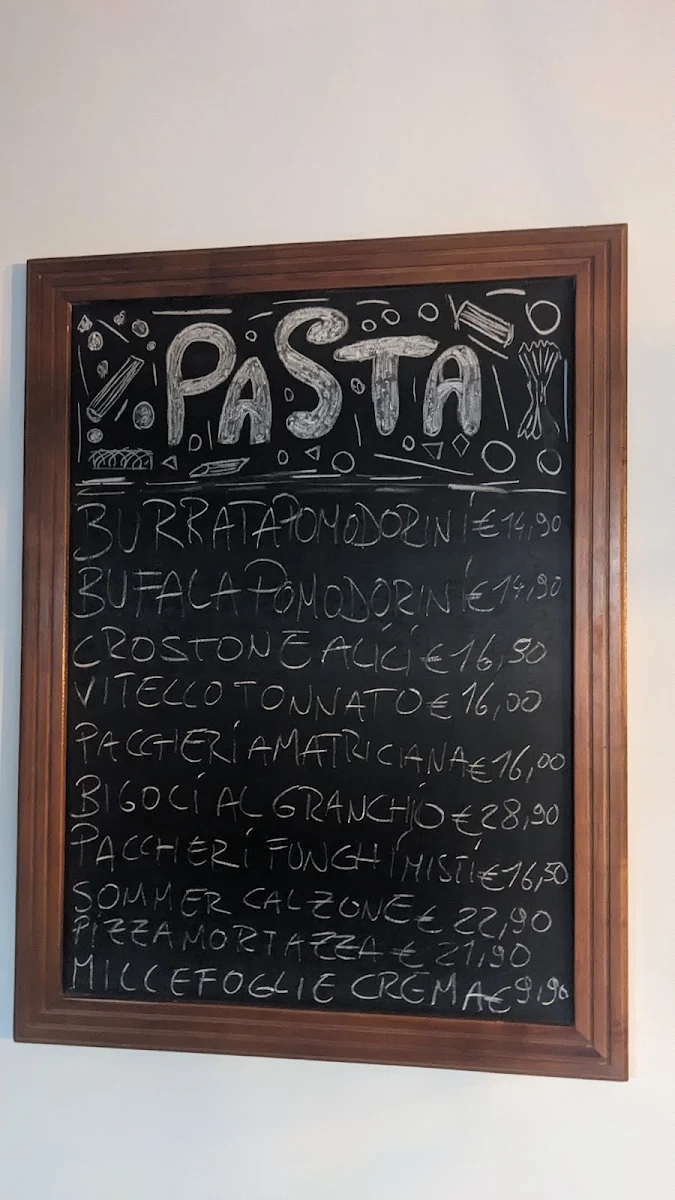 PASTA
BURRATA POMODORINI €14,90
BUFALA POMODORINI €14,90
CROSTONE ALICI €16,90
VITELLO TONNATO €16,00
PACCHERI AMATRICIANA €16,00
BIGOCI AL GRANCHIO €28,90
PACCHERI FUNGHI MISTI €16,50
SOMMER CALZONE € 22,90
PIZZA MORTAZZA € 21,90
MILLEFOGLIE CREMA €9,90